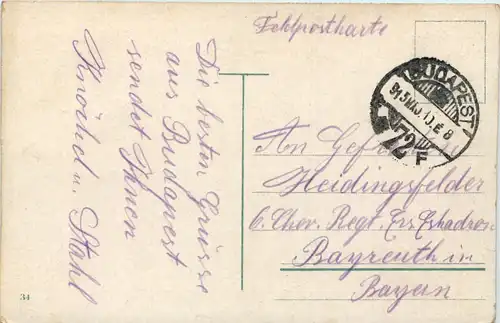 Feldpostkarte
Die besten Grüsse
aus Budapest
sendet Ihnen
Knöchel u. Stahl
BUDAPEST
72
F
An Gefreiten
Heidingsfelder
6. Chev. Regt. Ers. Eskadron
Bayreuth in
Bayern
34